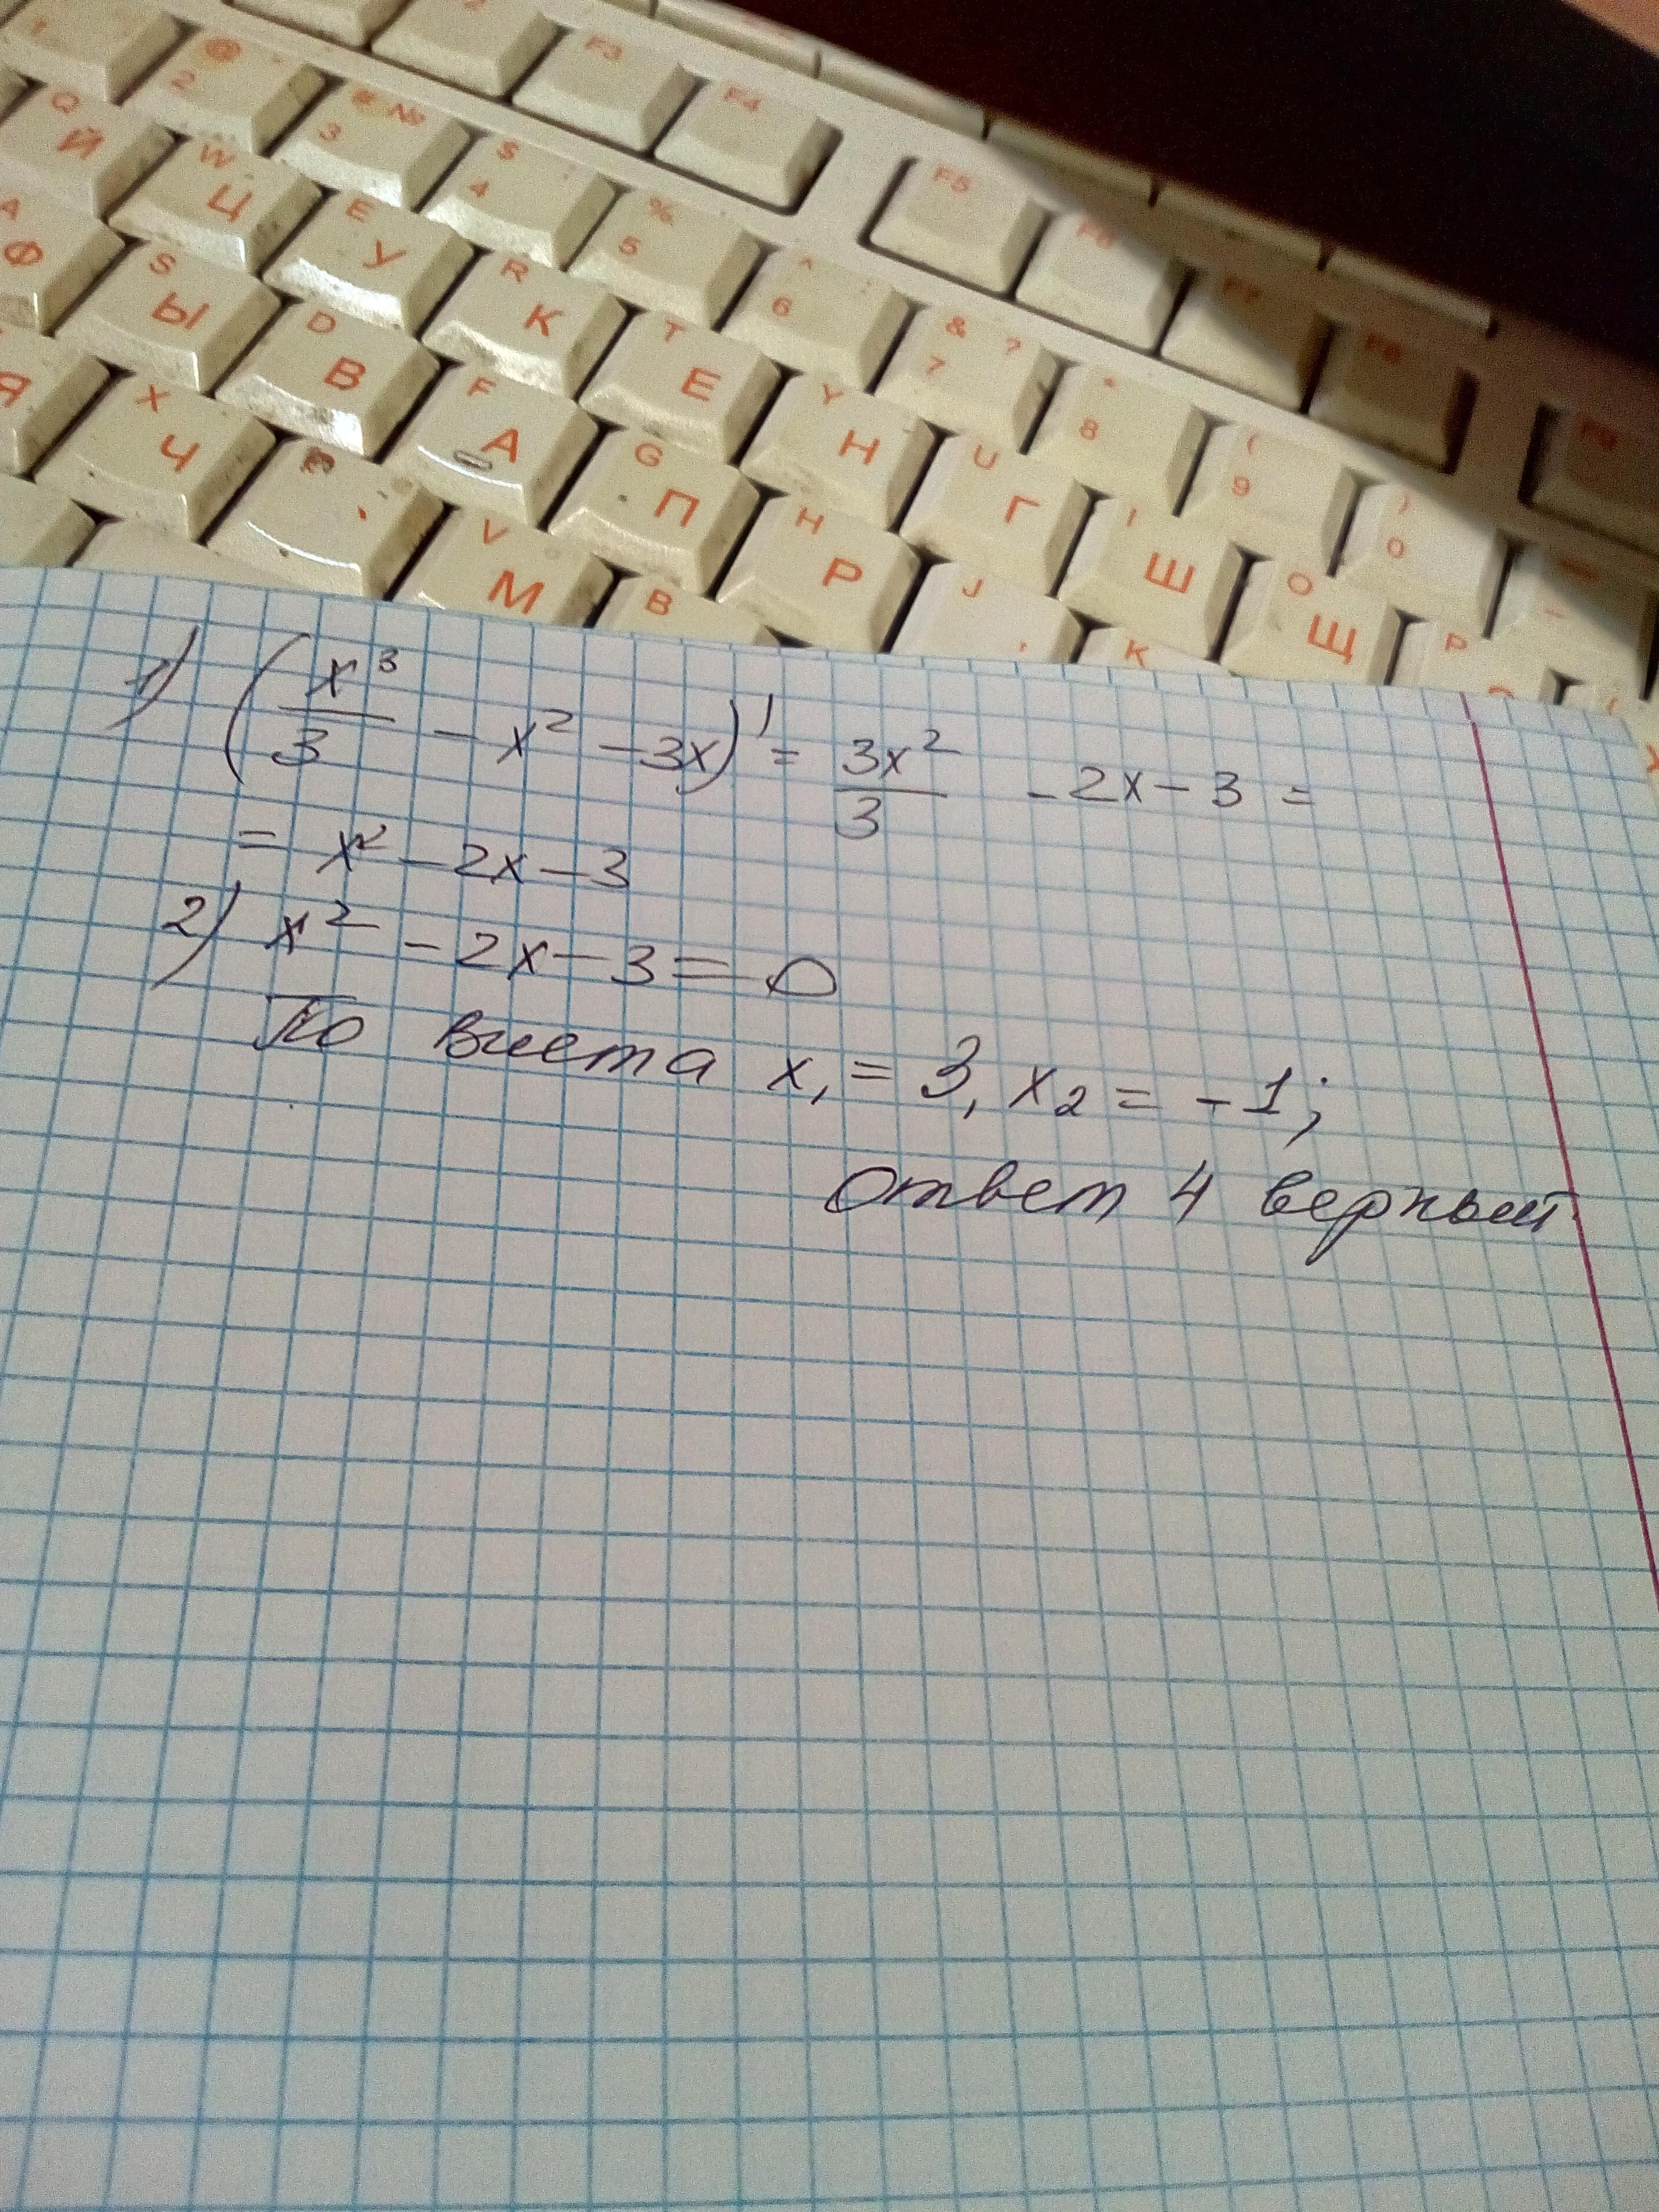 1 F3 F4 F5 F6 F7 F8 F9
@ 2 # № 3 $ 4 % 5 ^ 6 & ? 7 * 8 ( 9 ) 0
Q Й W Ц E У R К T Е Y Н U Г I Ш O Щ P
A Ф S Ы D В F А G П H Р J K
Я X Ч V М B
1) (x³/3 - x² - 3x)' = 3x²/3 - 2x - 3 =
= x² - 2x - 3
2) x² - 2x - 3 = 0
По виета x₁ = 3, x₂ = -1;
ответ 4 верный.